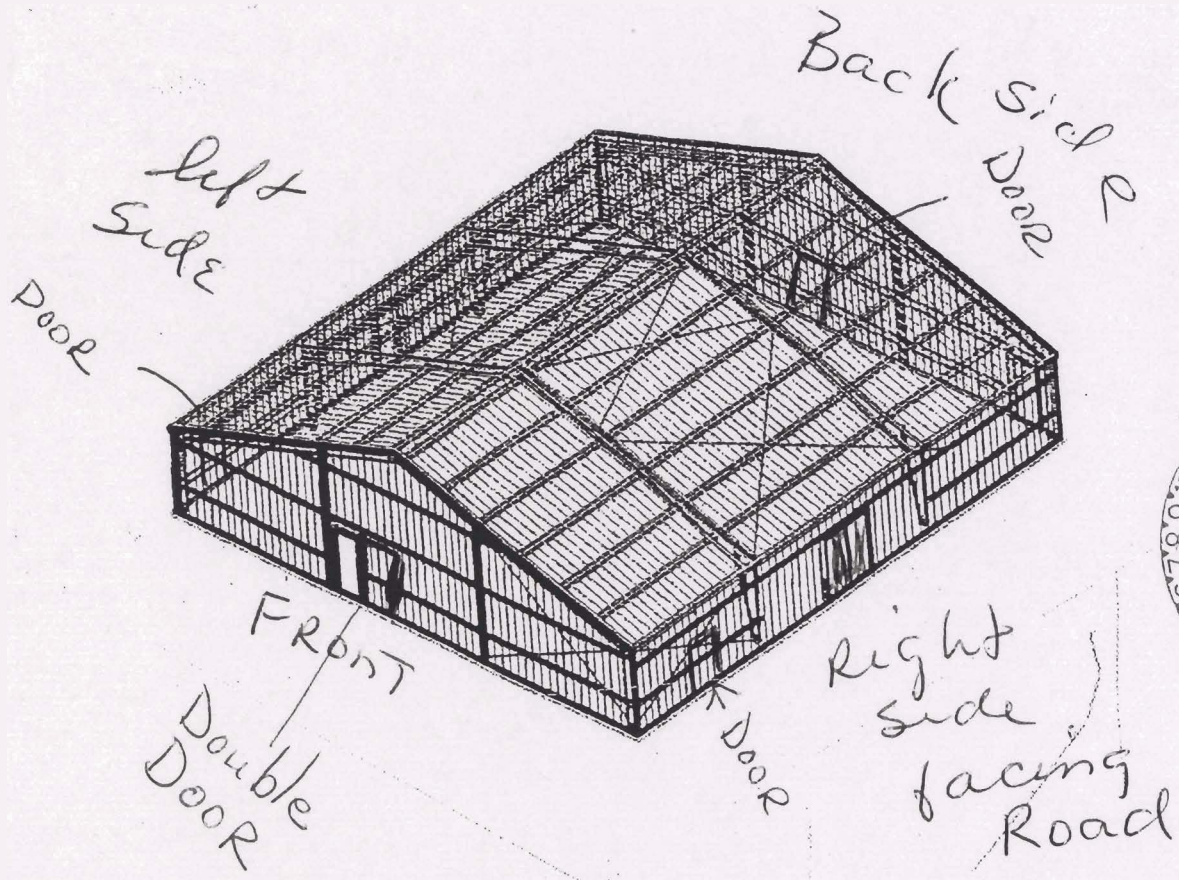 Back Side
DOOR
left
Side
DOOR
FRONT
Double
DOOR
DOOR
Right
Side
facing
Road